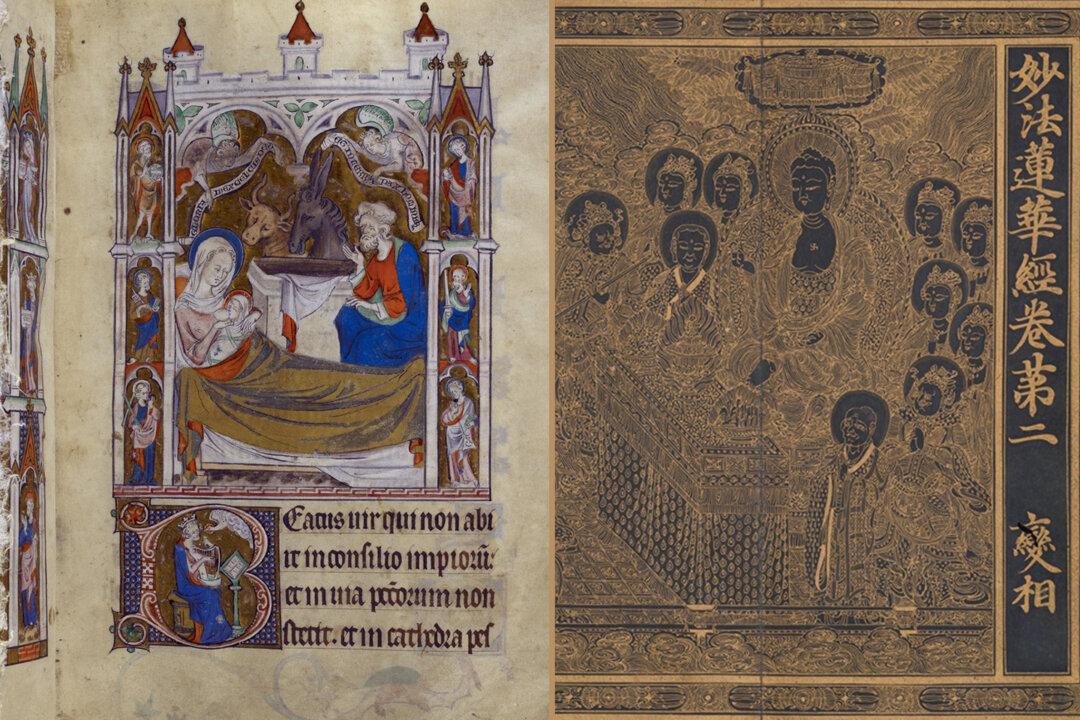 Beatus uir qui non abi
it in consilio impiorū:
et in uia pc̄torum non
stetit. et in cathedra pes
妙法蓮華經卷苐二 變相